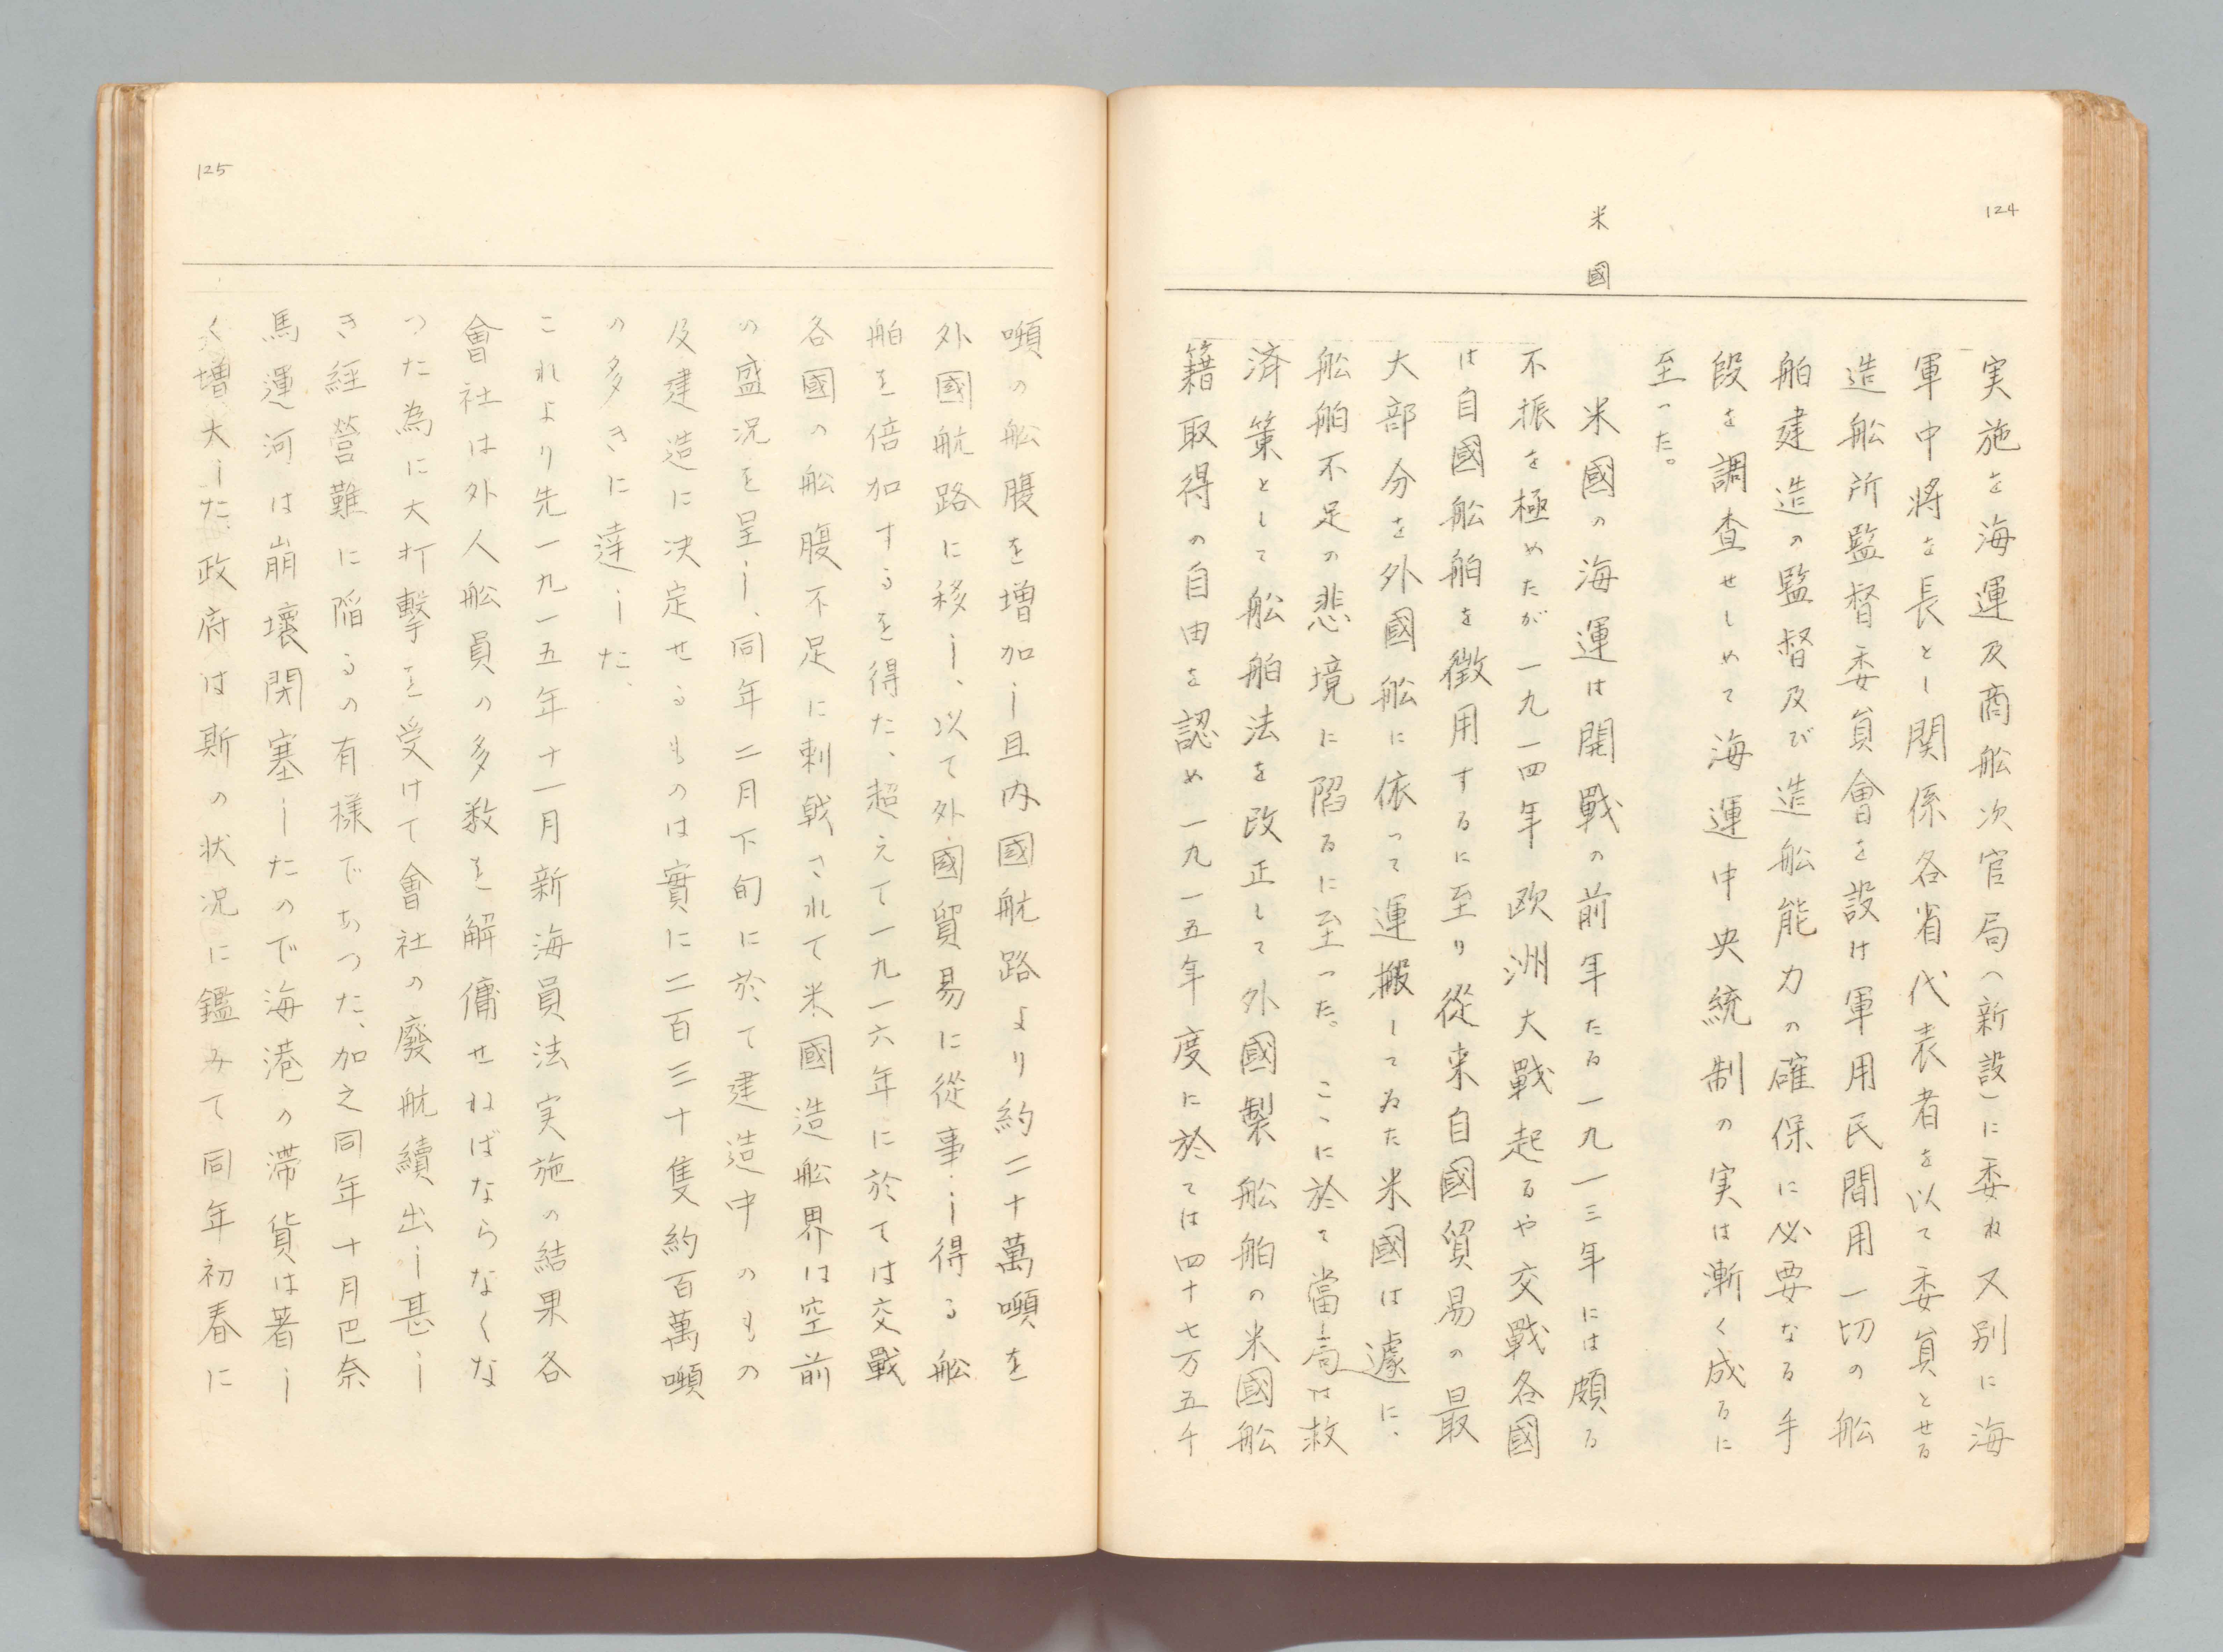 124
米國
実施を海運及商舩次官局(新設)に委ね又別に海
軍中将を長とし関係各省代表者を以て委員とせる
造舩所監督委員會を設け軍用民間用一切の舩
舶建造の監督及び造舩能力の確保に必要なる手
段を調査せしめて海運中央統制の実は漸く成るに
至った。
米國の海運は開戰の前年たる一九一三年には頗る
不振を極めたが一九一四年欧洲大戰起るや交戰各國
は自國舩舶を徴用するに至り從来自國貿易の最
大部分を外國舩に依って運搬してゐた米國は遽に、
舩舶不足の悲境に陷るに至った。こゝに於て當局は救
済策として舩舶法を改正して外國製舩舶の米國舩
籍取得の自由を認め一九一五年度に於ては四十七万五千
125
噸の舩腹を増加し且内國航路より約二十萬噸を
外國航路に移し、以て外國貿易に從事し得る舩
舶を倍加するを得た、超えて一九一六年に於ては交戰
各國の舩腹不足に刺戟されて米國造舩界は空前
の盛況を呈し、同年二月下旬に於て建造中のもの
及建造に決定せるものは實に二百三十隻約百萬噸
の多きに達した、
これより先一九一五年十一月新海員法実施の結果各
會社は外人舩員の多数を解傭せねばならなくな
つた為に大打撃を受けて會社の廢航續出し甚し
き経営難に陥るの有様であつた、加之同年十月巴奈
馬運河は崩壞閉塞したので海港の滞貨は著し
く増大した、政府は斯の状況に鑑みて同年初春に